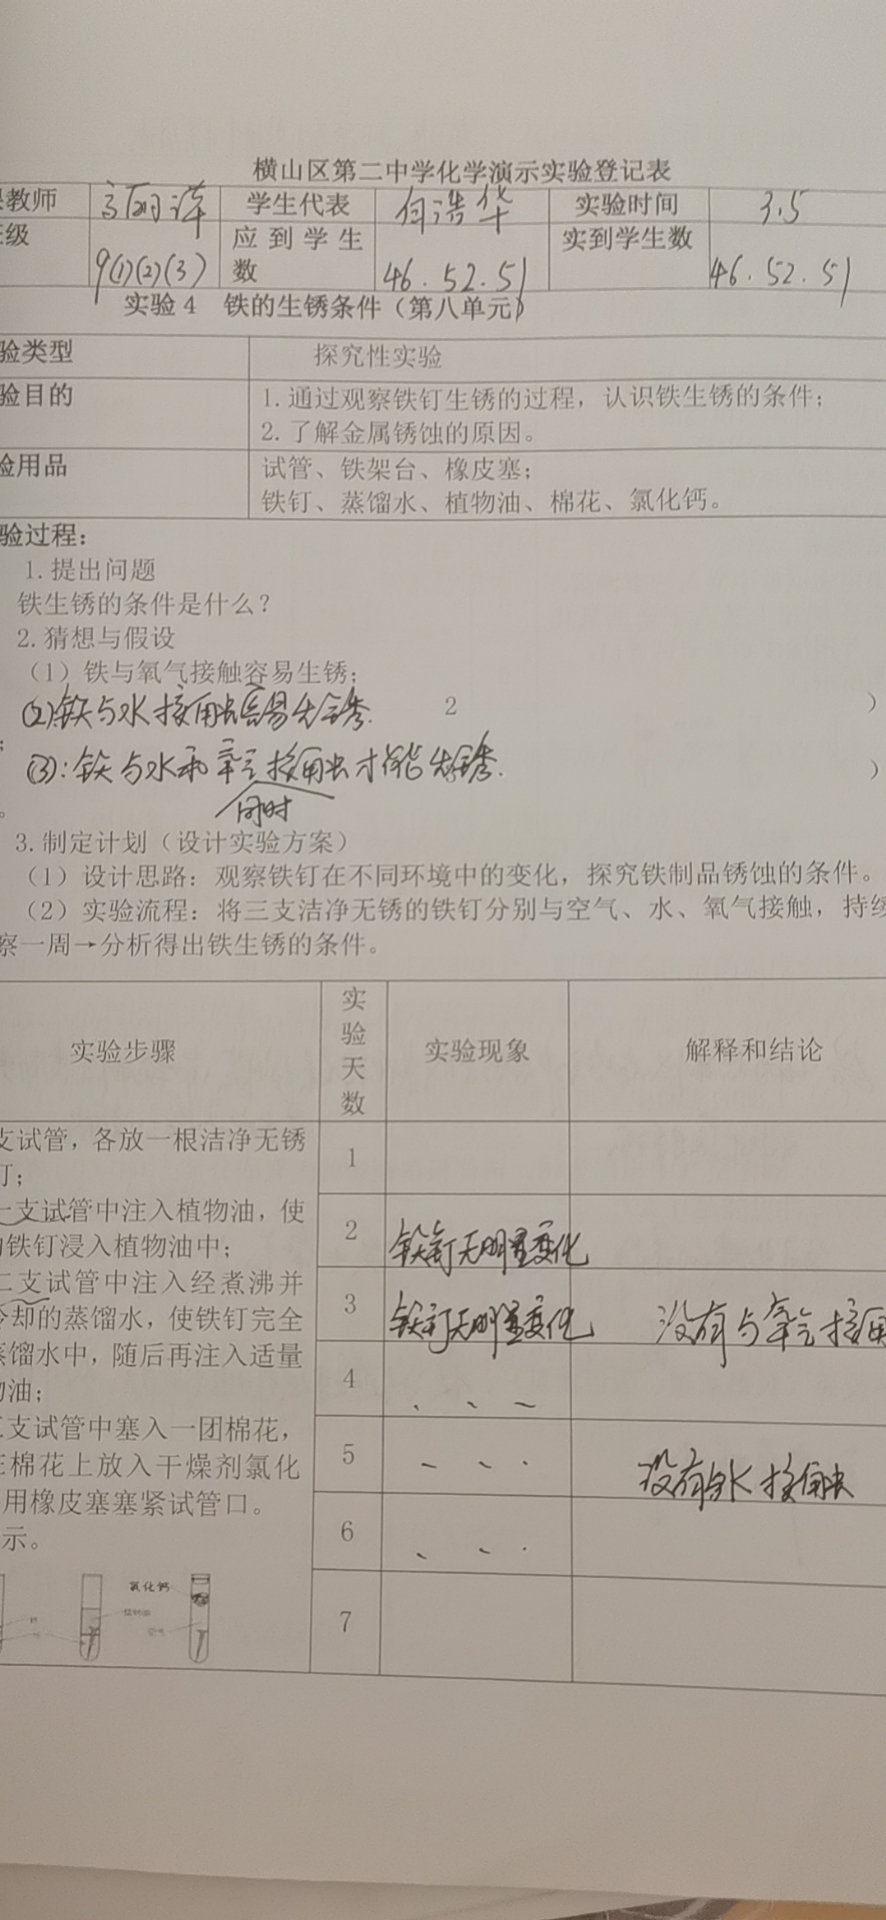 横山区第二中学化学演示实验登记表
教师 高丽萍 学生代表 何浩华 实验时间 3.5
级 9(1)(2)(3) 应到学生数 46.52.51 实到学生数 46.52.51
实验4 铁的生锈条件（第八单元）
验类型 探究性实验
验目的 1.通过观察铁钉生锈的过程，认识铁生锈的条件；
2.了解金属锈蚀的原因。
验用品 试管、铁架台、橡皮塞；
铁钉、蒸馏水、植物油、棉花、氯化钙。
验过程：
1.提出问题
铁生锈的条件是什么？
2.猜想与假设
（1）铁与氧气接触容易生锈；
(2)铁与水接触容易生锈. 2 ）
；
(3):铁与水和氧气接触才能生锈. ）
同时
。
3.制定计划（设计实验方案）
（1）设计思路：观察铁钉在不同环境中的变化，探究铁制品锈蚀的条件。
（2）实验流程：将三支洁净无锈的铁钉分别与空气、水、氧气接触，持续
察一周→分析得出铁生锈的条件。
实验步骤 实验天数 实验现象 解释和结论
支试管，各放一根洁净无锈
钉；
一支试管中注入植物油，使
的铁钉浸入植物油中；
二支试管中注入经煮沸并
冷却的蒸馏水，使铁钉完全
蒸馏水中，随后再注入适量
物油；
三支试管中塞入一团棉花，
在棉花上放入干燥剂氯化
用橡皮塞塞紧试管口。
示。
氯化钙
植物油
空气
1
2 铁钉无明显变化
3 铁钉无明显变化 没有与氧气接触
4
5 没有与水接触
6
7